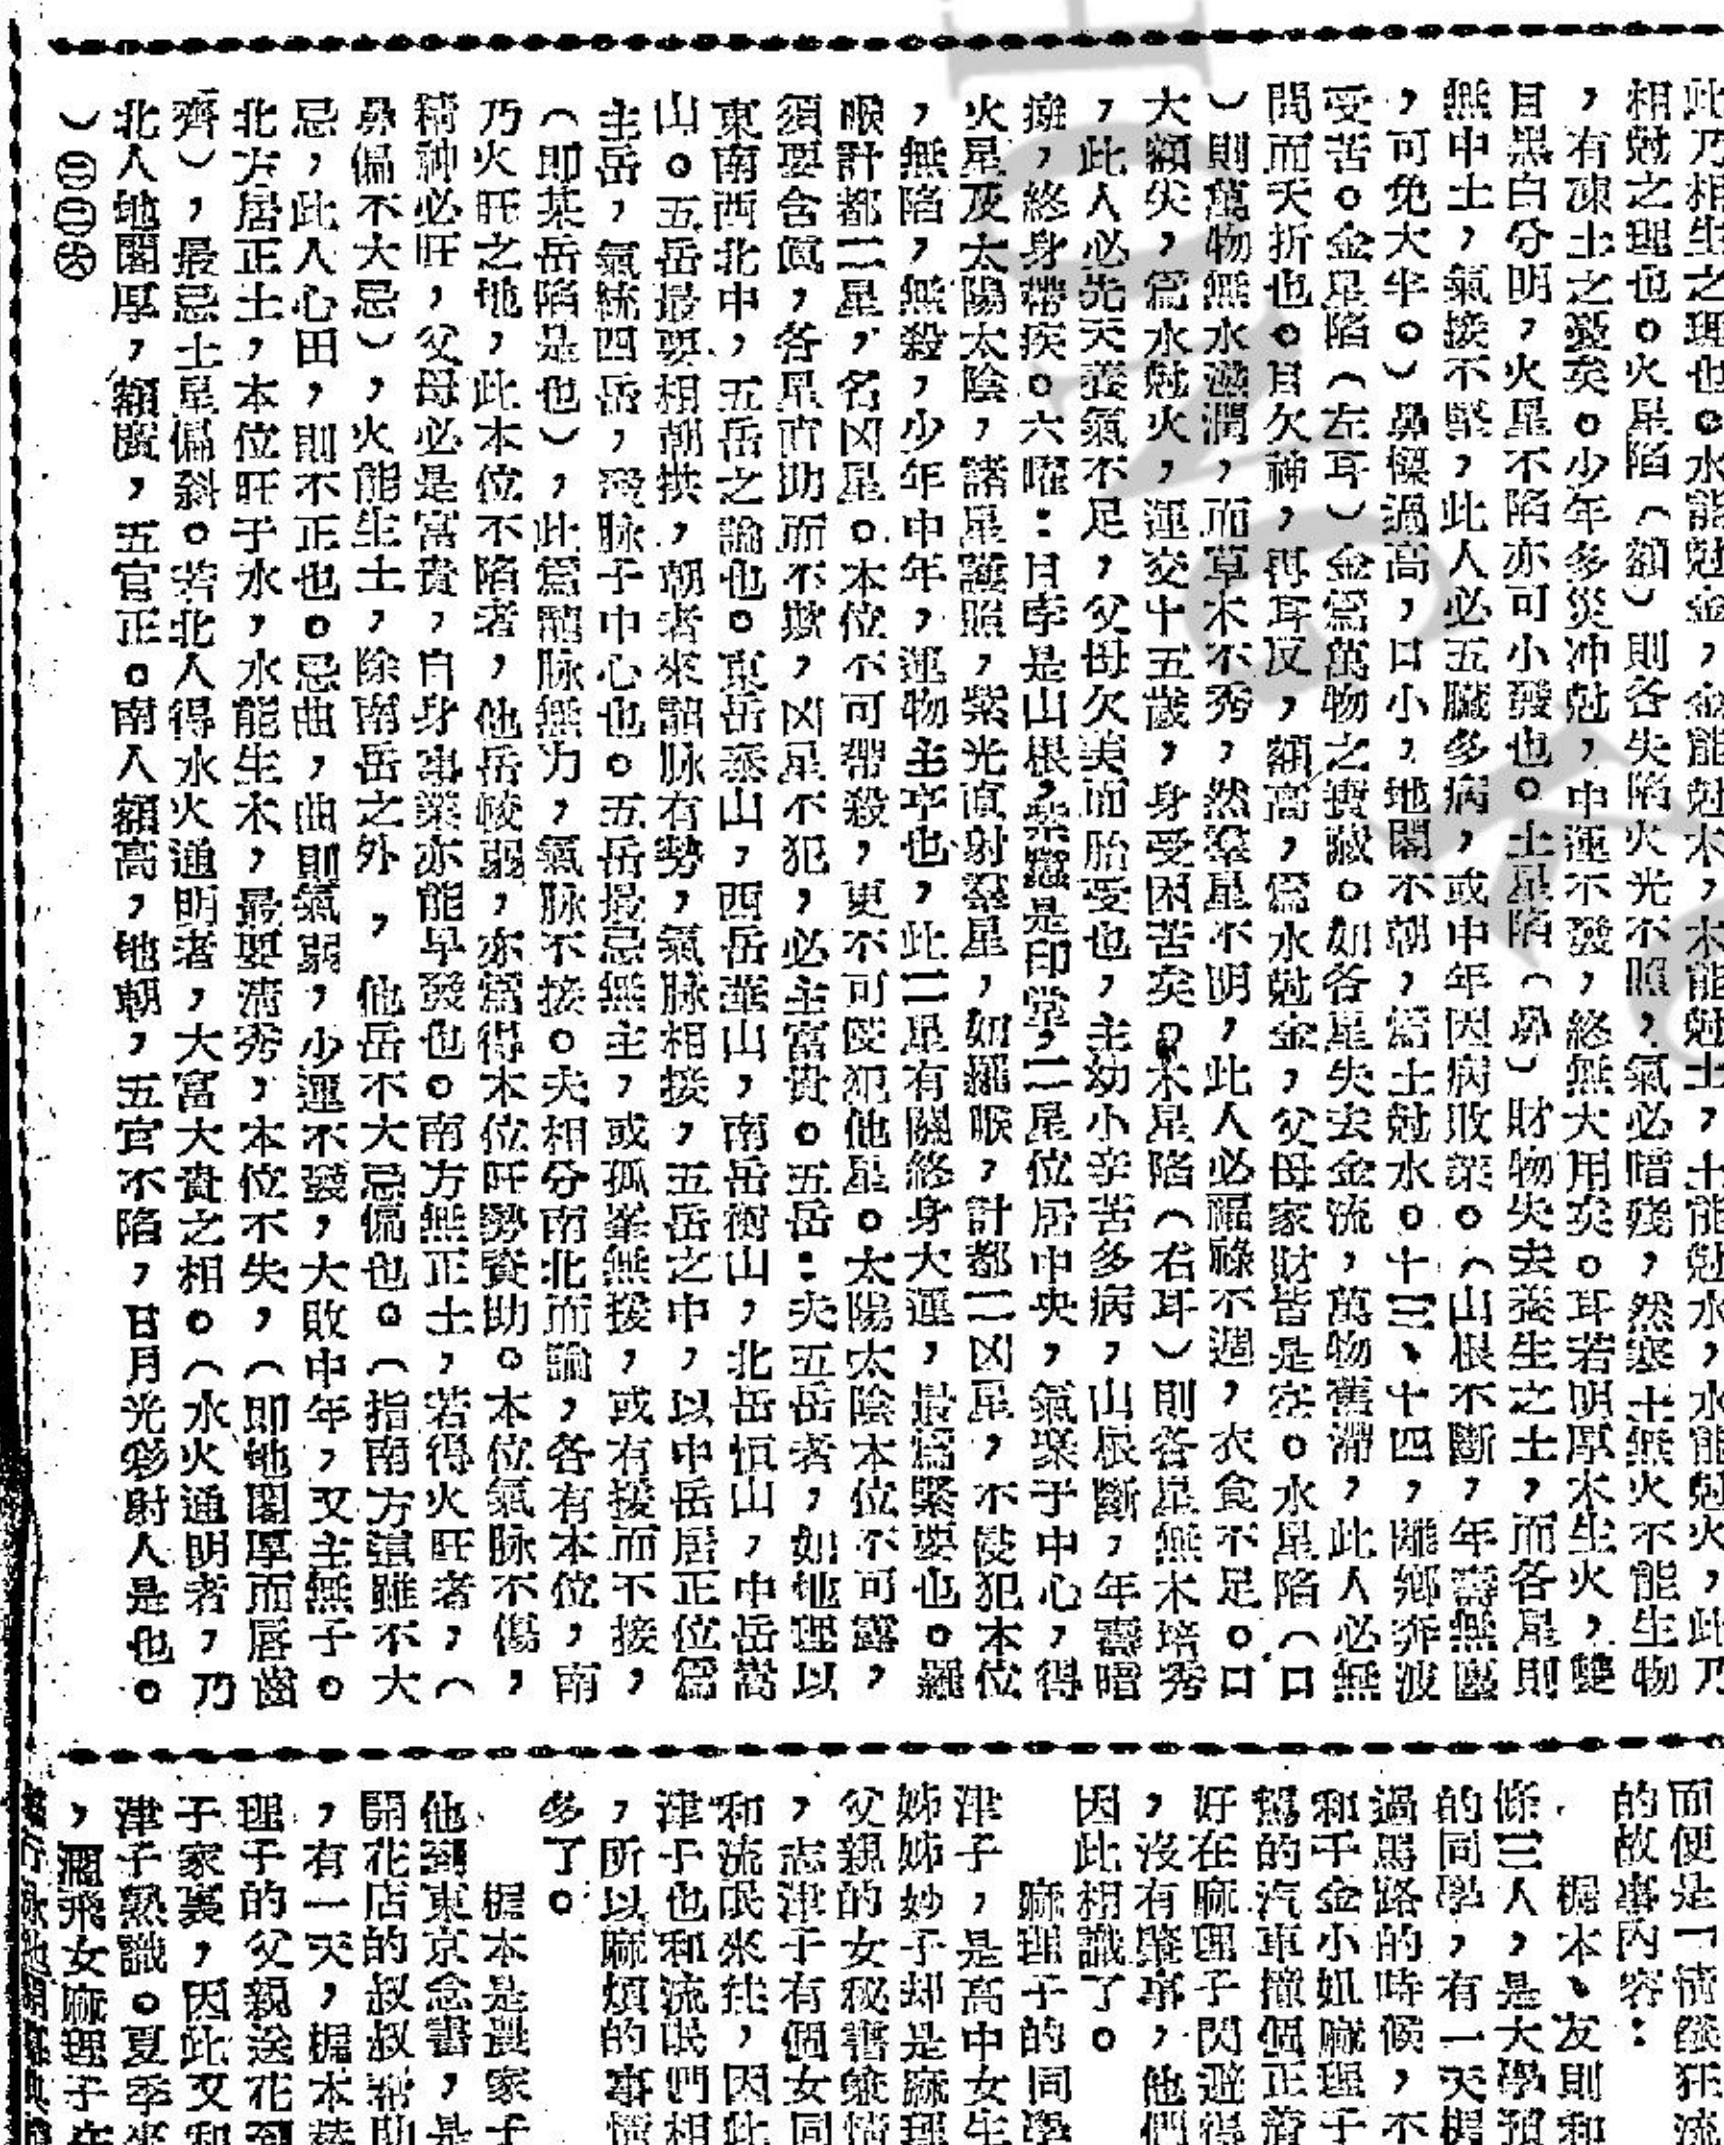 此乃相生之理也。水能尅金，金能尅木，木能尅土，土能尅水，水能尅火，此乃
相尅之理也。火星陷（額）則各失陷火光不照，氣必暗殘，然寒土無火不能生物
，有凍土之憂矣。少年多災冲尅，中運不發，終無大用矣。耳若明厚木生火，雙
目黑白分明，火星不陷亦可小發也。土星陷（鼻）財物失去養生之土，而各星則
無中土，氣接不堅，此人必五臟多病，或中年因病敗業。（山根不斷，年壽無壓
，可免大半。）鼻樑過高，口小，地閣不朝，爲土尅水。十三、十四，離鄉奔波
受苦。金星陷（左耳）金爲萬物之寶藏。如各星失去金流，萬物舊滯，此人必無
間而夭折也。目欠神，再耳反，額高，爲水尅金，父母家財皆是空。水星陷（口
）則萬物無水滋潤，而草木不秀，然羣星不明，此人必福祿不週，衣食不足。口
大額尖，爲水尅火，運交十五歲，身受困苦矣。木星陷（右耳）則各星無木培秀
，此人必先天養氣不足，父母欠美而胎受也，主幼小辛苦多病，山根斷，年壽暗
癆，終身帶疾。六曜：月孛是山根，紫炁是印堂，二星位居中央，氣聚于中心，得
火星及太陽太陰，諸星護照，紫光直射羣星，如羅睺，計都二凶星，不使犯本位
，無陷，無殺，少年中年，運物主亨也，此二星有關終身大運，最爲緊要也。羅
睺計都二星，名凶星。本位不可帶殺，更不可使犯他星。太陽太陰本位不可露，
須要含眞，各星直助而不欺，凶星不犯，必主富貴。五岳：夫五岳者，如地理以
東南西北中，五岳之論也。東岳泰山，西岳華山，南岳衡山，北岳恒山，中岳嵩
山。五岳最要相朝拱，朝者來龍脉有勢，氣脉相接，五岳之中，以中岳居正位爲
主岳，氣統四岳，發脉于中心也。五岳最忌無主，或孤峯無援，或有援而不接，
（即某岳陷是也），此爲龍脉無力，氣脉不接。夫相分南北而論，各有本位，南
乃火旺之地，此本位不陷者，他岳較弱，亦當得本位旺勢資助。本位氣脉不傷，
精神必旺，父母必是富貴，自身事業亦能早發也。南方無正土，若得火旺者，（
鼻偏不大忌），火能生土，除南岳之外，他岳不大忌偏也。（指南方這雖不大
忌，此人心田，則不正也。忌曲，曲則氣弱，少運不發，大敗中年，又主無子。
北方居正土，本位旺于水，水能生木，最要清秀，本位不失，（即地閣厚而唇齒
齊），最忌土星偏斜。若北人得水火通明者，大富大貴之相。（水火通明者，乃
北人地閣厚，額廣，五官正。南人額高，地朝，五官不陷，目月光彩射人是也。
）㊂㊁㊅
而便是一情發狂流
的故事內容：
楊本、友則和
條三人，是大學預
的同學，有一天楊
過馬路的時候，不
和千金小姐麻理子
駕的汽車撞個正着
好在麻理子閃避得
，沒有肇事，他們
因此相識了。
麻理子的同學
津子，是高中女生
姊姊妙子却是麻理
父親的女秘書兼情
，志津子有個女同
和流氓來往，因此
津子也和流氓們相
，所以麻煩的事情
多了。
楊本是農家子
他到東京念書，是
開花店的叔叔帮助
，有一天，楊本替
理子的父親送花到
子家裏，因此又和
津子熟識。夏季來
，瀾飛女麻理子在